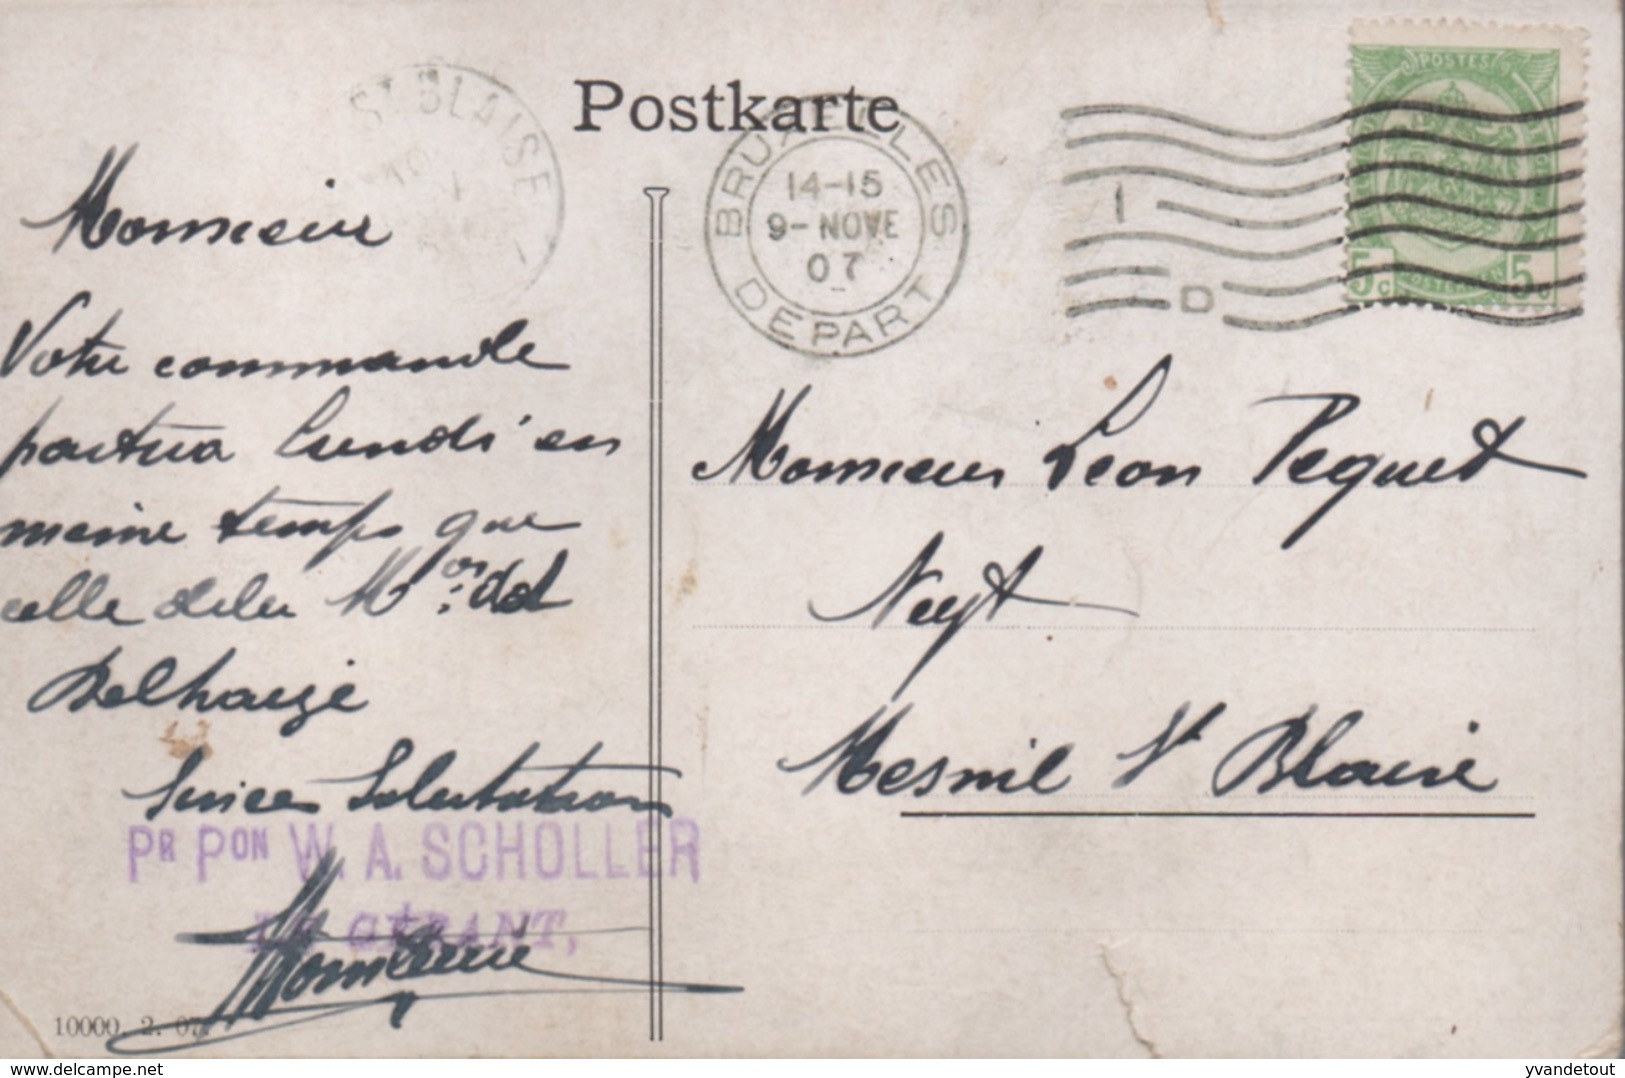 Postkarte
ST BLAISE
BRUXELLES
14-15
9-NOVE
07
DEPART
1
D
POSTES
5c 5c
Monsieur
Votre commande
partira lundi en
meme temps que
celle de la M
Delhaize
Sinceres Salutations
PR PON W. A. SCHOLLER
LE GÉRANT,
10000. 2. 07.
Monsieur Léon Pequet
Negt
Mesnil St Blaise
delcampe.net
yvandetout